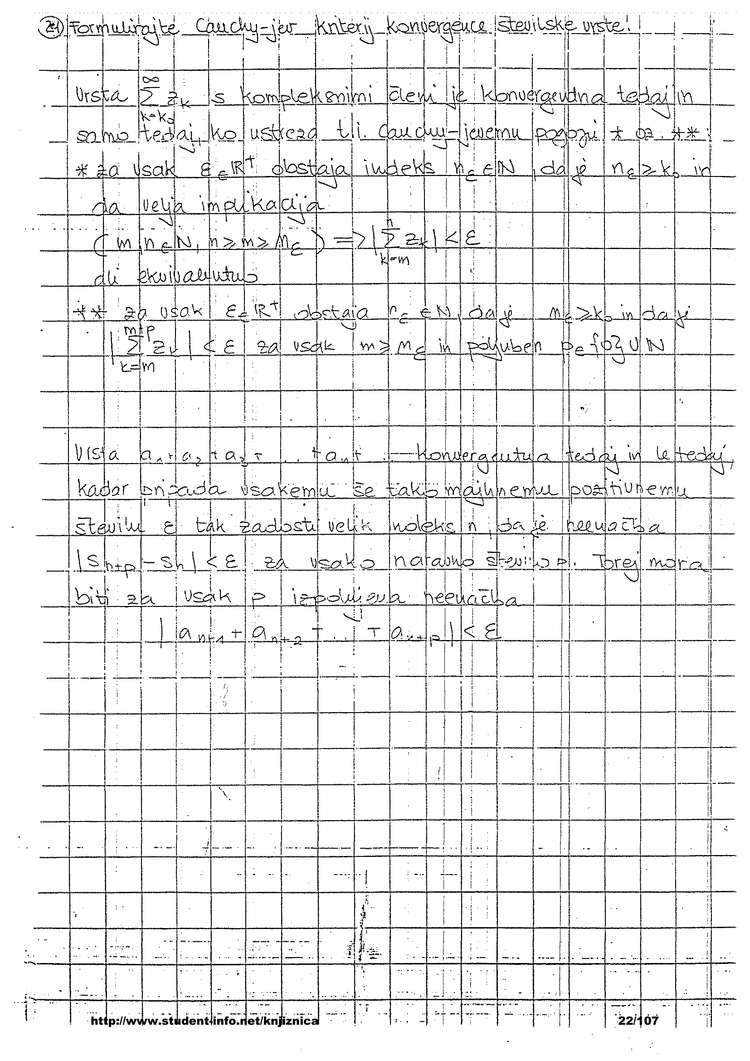 21) Formulirajte Cauchy-jev kriterij konvergence številske vrste!
Vrsta ∑_{k=k₀}^{∞} z_k s kompleksnimi členi je konvergentna tedaj in
samo tedaj, ko ustreza t.i. Cauchy-jevemu pogoju * oz. **:
* za vsak ε∈ℝ⁺ obstaja indeks n_ε∈ℕ, da je n_ε≥k₀ in
da velja implikacija
(m,n∈ℕ, n≥m≥n_ε) => |∑_{k=m}^{n} z_k| < ε
ali ekvivalentno
** za vsak ε∈ℝ⁺ obstaja n_ε∈ℕ, da je n_ε≥k₀ in da je
|∑_{k=m}^{m+p} z_k| < ε za vsak m≥n_ε in poljuben p∈{0}∪ℕ
Vrsta a₁+a₂+a₃+...+aₙ+... konvergentna tedaj in le tedaj,
kadar pripada vsakemu še tako majhnemu pozitivnemu
številu ε tak zadosti velik indeks n, da je neenačba
|s_{n+p}-s_n|<ε za vsako naravno število p. Torej mora
biti za vsak p izpolnjena neenačba
|a_{n+1}+a_{n+2}+...+a_{n+p}|<ε
http://www.student-info.net/knjiznica 22/107